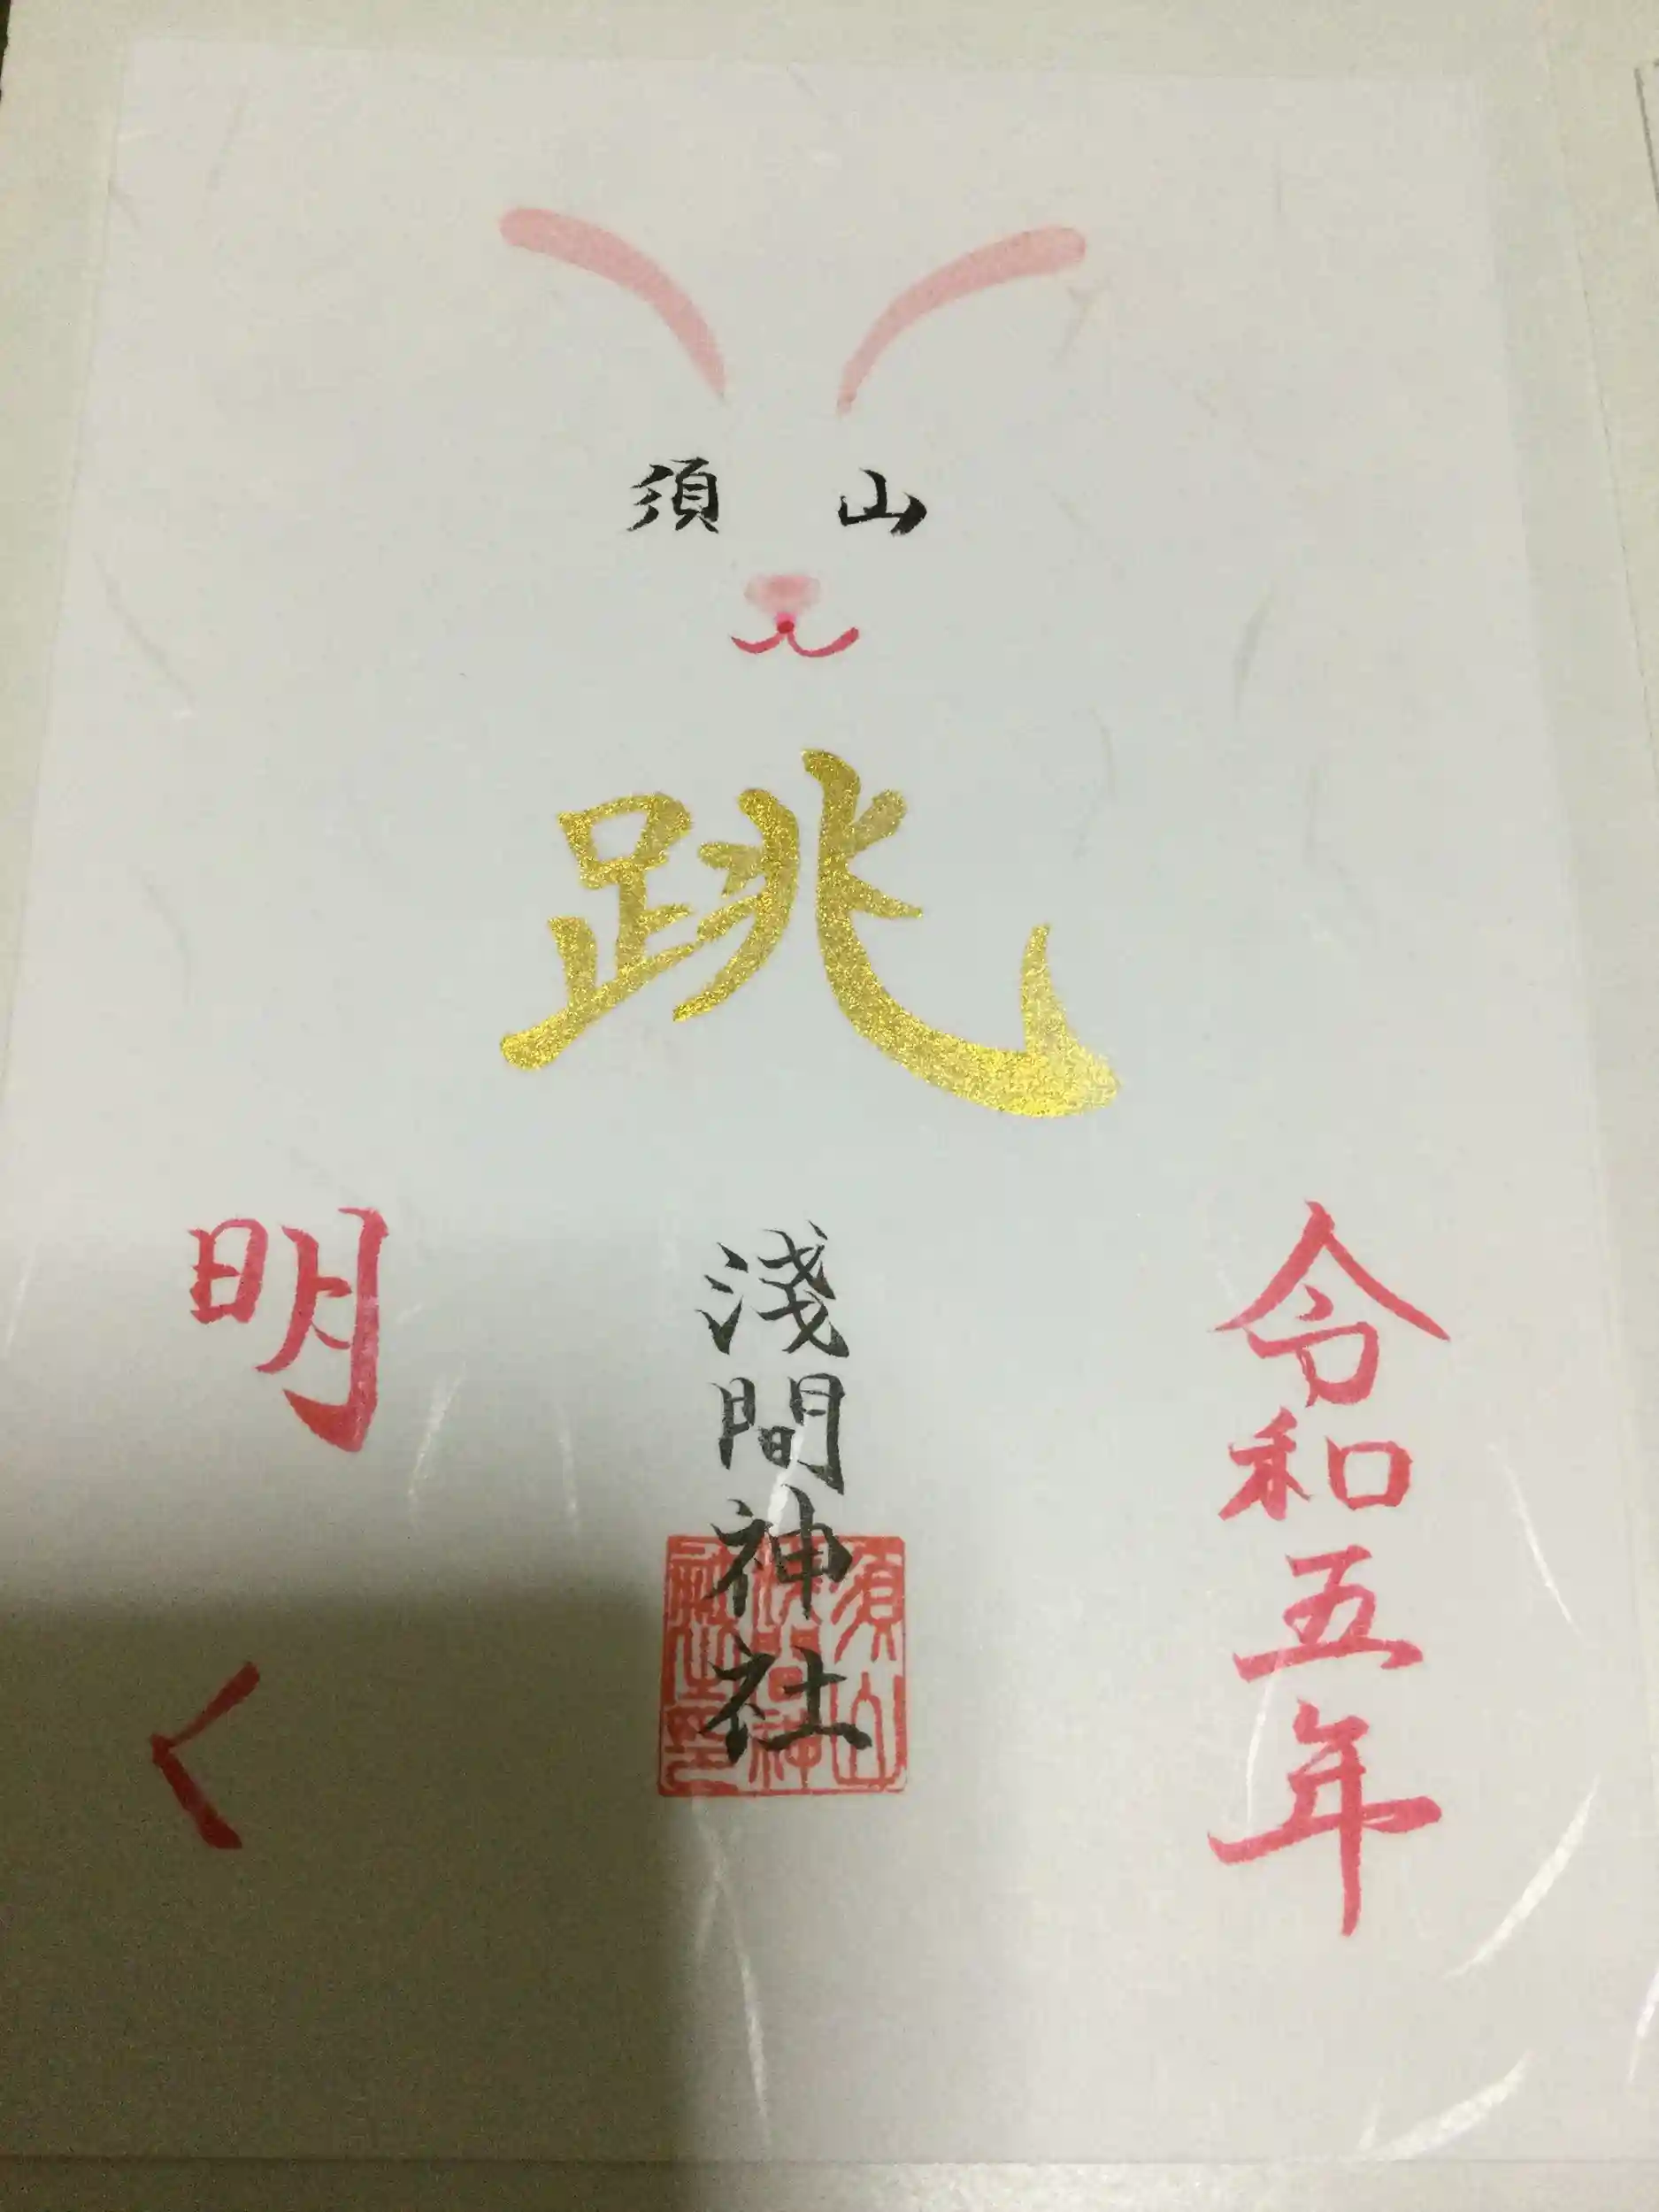 須山
跳
令和五年
淺間神社
明く
須山
淺間神
社之印